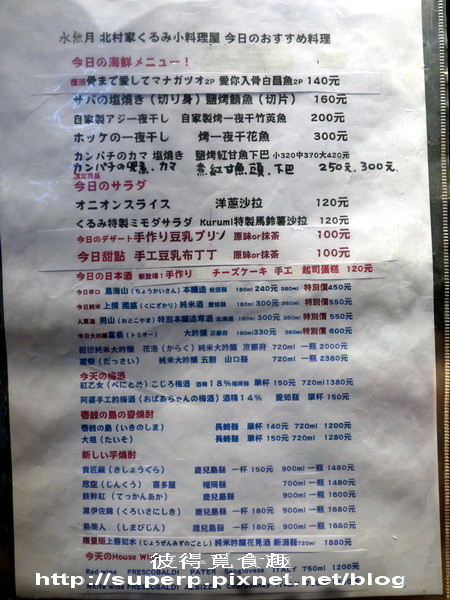 水無月 北村家くるみ小料理屋 今日のおすすめ料理
今日の海鮮メニュー！
復活 骨まで愛してマナガツオ2P 愛你入骨白昌魚2P 140元
サバの塩焼き（切り身）鹽烤鯖魚（切片） 160元
自家製アジ一夜干し 自家製烤一夜干竹莢魚 200元
ホッケの一夜干し 烤一夜干花魚 300元
カンパチのカマ 塩焼き 鹽烤紅甘魚下巴 小320中370大420元
カンパチの カマ 煮紅甘魚頭、下巴 250元、300元.
限定商品
今日のサラダ
オニオンスライス 洋蔥沙拉 120元
くるみ特製ミモダサラダ Kurumi特製馬鈴薯沙拉 120元
今日のデザート 手作り豆乳プリン 原味or抹茶 100元
今日甜點 手工豆乳布丁 原味or抹茶 100元
今日の日本酒 新登場！手作り チーズケーキ 手工 起司蛋糕 120元
今日辛口 鳥海山（ちょうかいさん）本醸造 秋田縣 180ml 240元 360ml 特別價450元
今日純米 上撰 國盛（くにざかり）純米酒 愛知縣 180ml 300元 360ml 特別價550元
人氣酒 男山（おとこやま）特別本醸造寒酒 北海道 180ml 300元 360ml 特別價550元
今日大吟醸 富翁（トミオー） 大吟醸 京都府 180ml 330元 360ml 特別價 600元
純米大吟醸 花洛（からく）純米大吟醸 京都府 720ml 一瓶 2000元
獺祭（だっさい） 純米大吟醸 五割 山口縣 720ml 一瓶 2380元
今天の梅酒
紅乙女（べにとめ）こじろ梅酒 酒精18％ 福岡縣 單杯 150元 720ml 1380元
阿婆手工的梅酒（おばあちゃんの梅酒）酒精14％ 愛知縣 單杯 130元
壱岐の島の麥焼酎
壱岐の島（いきのしま） 長崎縣 單杯 140元 720ml 1200元
大祖（たいそ） 長崎縣 單杯 150元 720ml 1280元
新しい芋焼酎
貴匠蔵（きしょうぐら） 鹿兒島縣 一杯 150元 900ml 一瓶 1480元
尽空（じんくう） 喜多屋 福岡縣 700ml 一瓶 1500元
鉄幹紅（てっかんあか） 鹿兒島縣 900ml 一瓶 1600元
黒伊佐錦（くろいさにしき） 鹿兒島縣 一杯 180元 900ml 一瓶 1680元
島美人（しまびじん） 鹿兒島縣 一杯 180元 900ml 一瓶 1680元
限量版 上善如水（じょうぜんみずのごとし）純米吟醸花見酒 新潟縣 720ml 1880元
今天のHouse Wine
Red wine FRESCOBALDI PATER Sangiovese ITALY 750ml 1200元
彼得覓食趣
http://superp.pixnet.net/blog